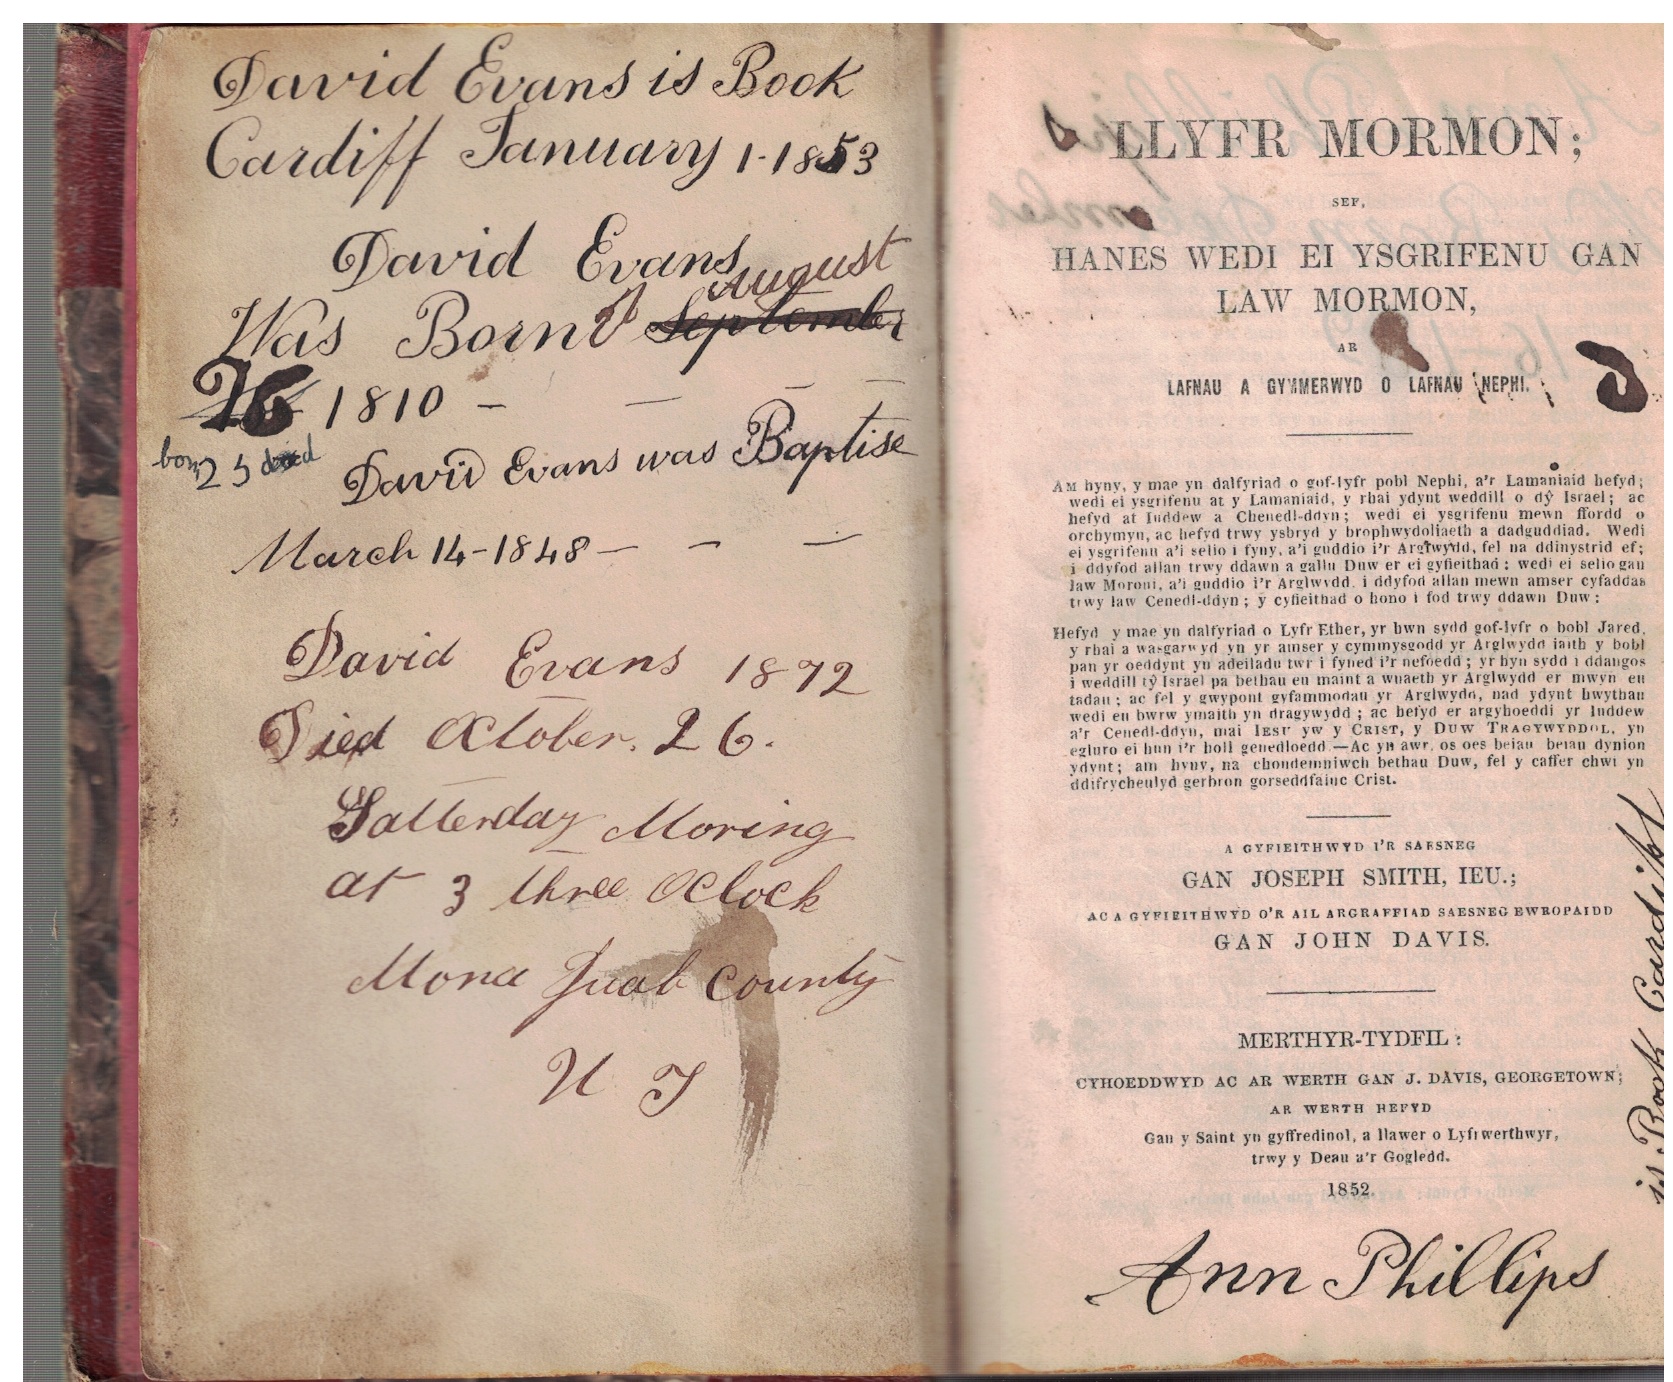 David Evans is Book
Cardiff January 1-1853
David Evans
August
Was Born September
26 1810 —
born 25
David Evans was Baptise
March 14-1848—
David Evans 1872
Died October. 26.
Satterday Moring
at 3 three Oclock
Mona Juab County
U T
LLYFR MORMON;
SEF,
HANES WEDI EI YSGRIFENU GAN
LAW MORMON,
AR
LAFNAU A GYMMERWYD O LAFNAU NEPHI.
AM hyny, y mae yn dalfyriad o gof-lyfr pobl Nephi, a'r Lamaniaid hefyd;
wedi ei ysgrifenu at y Lamaniaid, y rhai ydynt weddill o dŷ Israel; ac
hefyd at Iuddew a Chenedl-ddyn; wedi ei ysgrifenu mewn ffordd o
orchymyn, ac hefyd trwy ysbryd y brophwydoliaeth a dadguddiad. Wedi
ei ysgrifenu a'i selio i fyny, a'i guddio i'r Arglwydd, fel na ddinystrid ef;
i ddyfod allan trwy ddawn a gallu Duw er ei gyfieithad; wedi ei selio gan
law Moroni, a'i guddio i'r Arglwydd, i ddyfod allan mewn amser cyfaddas
trwy law Cenedl-ddyn; y cyfieithad o hono i fod trwy ddawn Duw:
Hefyd y mae yn dalfyriad o Lyfr Ether, yr hwn sydd gof-lyfr o bobl Jared,
y rhai a wasgarwyd yn yr amser y cymmysgodd yr Arglwydd iaith y bobl
pan yr oeddynt yn adeiladu twr i fyned i'r nefoedd; yr hyn sydd i ddangos
i weddill tŷ Israel pa bethau eu maint a wnaeth yr Arglwydd er mwyn eu
tadau; ac fel y gwypont gyfammodau yr Arglwydd, nad ydynt hwythau
wedi eu bwrw ymaith yn dragywydd; ac hefyd er argyhoeddi yr Iuddew
a'r Cenedl-ddyn, mai IESU yw y CRIST, y DUW TRAGYWYDDOL, yn
egluro ei hun i'r holl genedloedd.—Ac yn awr, os oes beiau beiau dynion
ydynt; am hyny, na chondemniwch bethau Duw, fel y caffer chwi yn
ddifrycheulyd gerbron gorseddfainc Crist.
A GYFIEITHWYD I'R SAESNEG
GAN JOSEPH SMITH, IEU.;
AC A GYFIEITHWYD O'R AIL ARGRAFFIAD SAESNEG EWROPAIDD
GAN JOHN DAVIS.
MERTHYR-TYDFIL:
CYHOEDDWYD AC AR WERTH GAN J. DAVIS, GEORGETOWN;
AR WERTH HEFYD
Gan y Saint yn gyffredinol, a llawer o Lyfrwerthwyr,
trwy y Deau a'r Gogledd.
1852.
Ann Phillips
is Book Cardiff